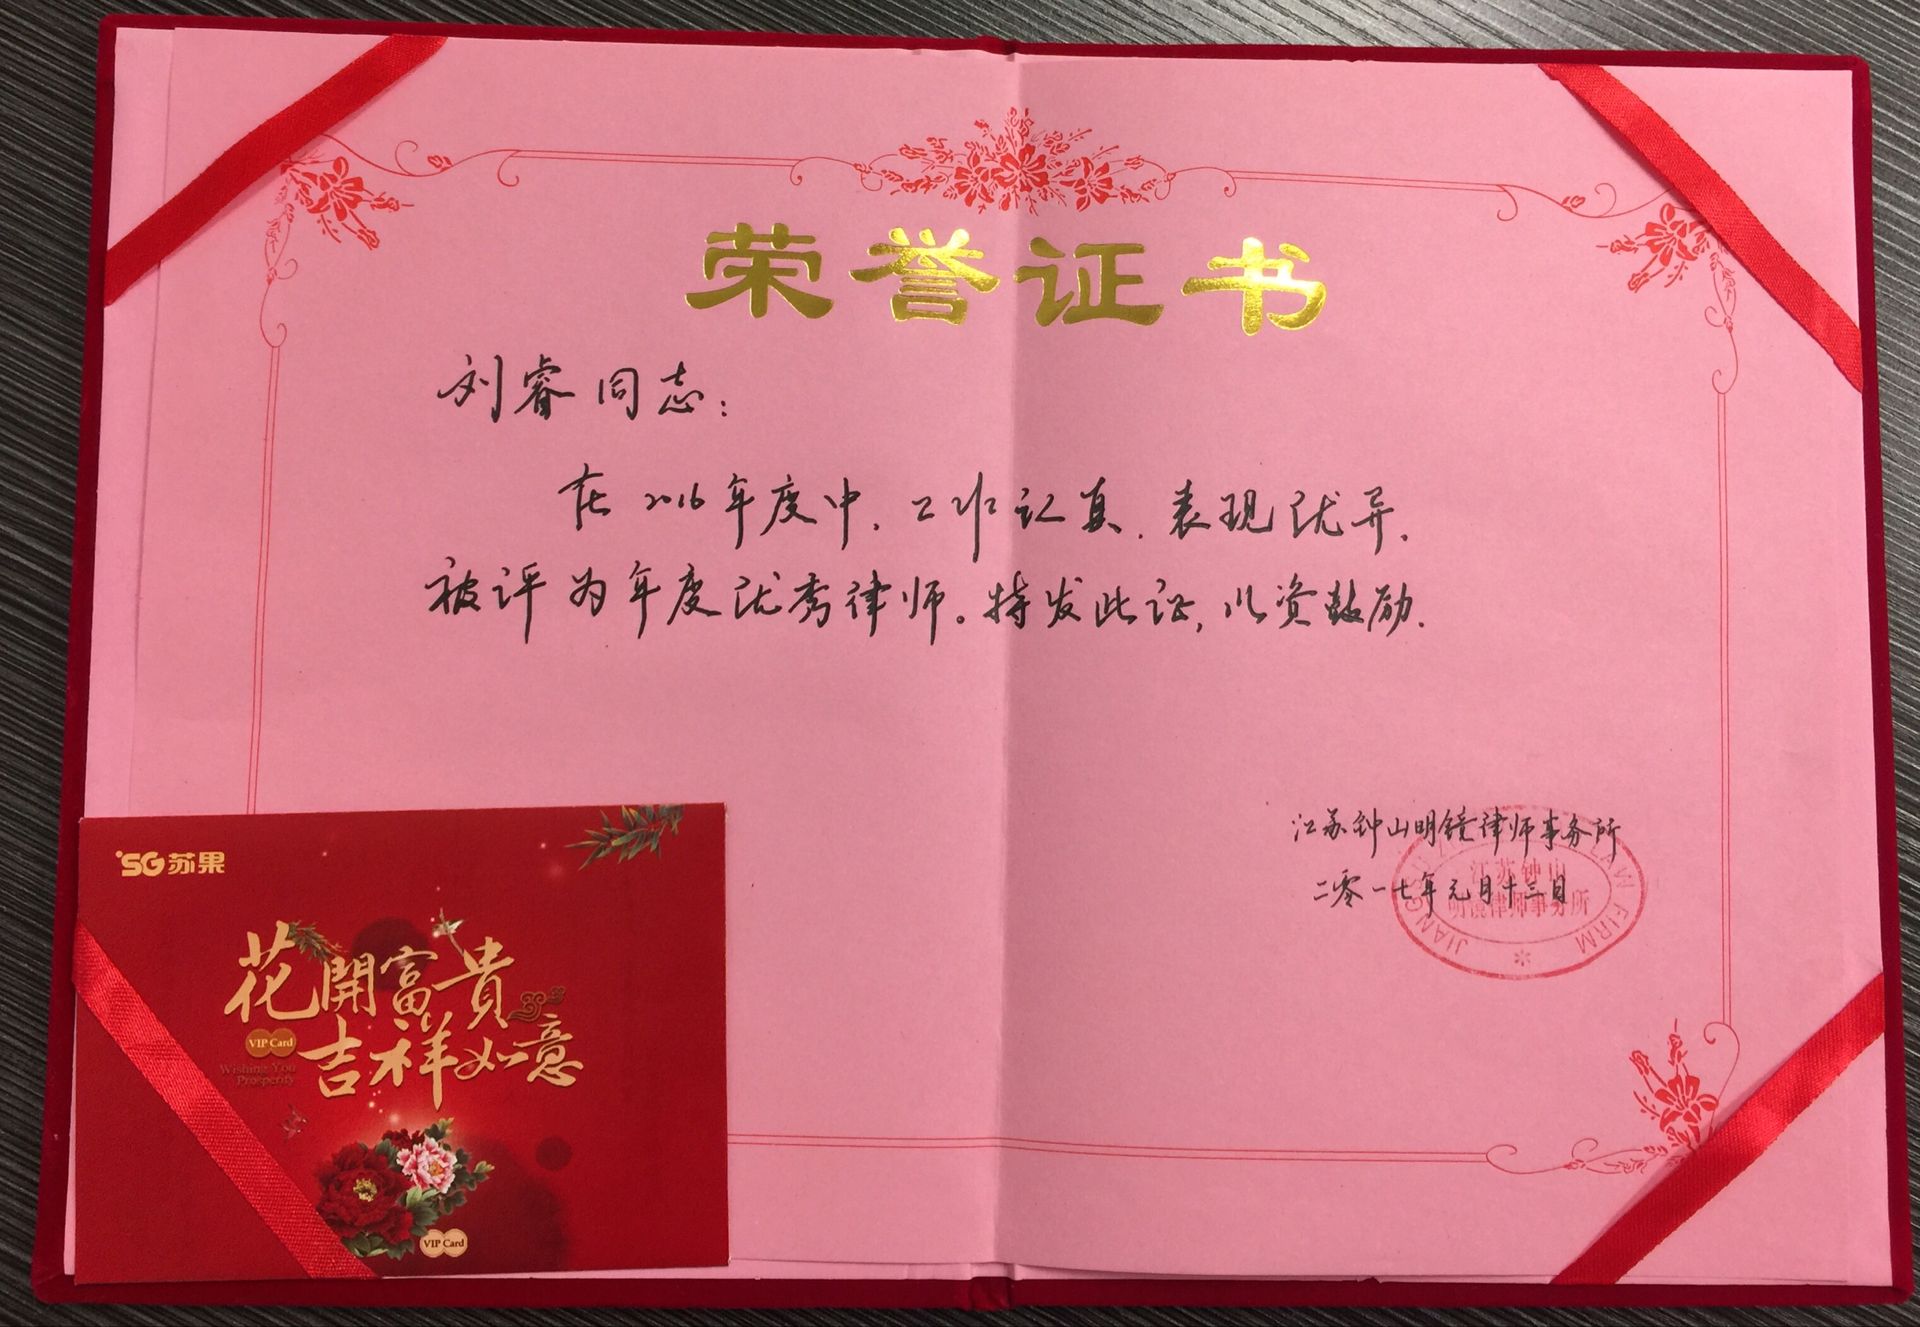 荣誉证书
刘睿同志：
在2016年度中，工作认真，表现优异，
被评为年度优秀律师。特发此证，以资鼓励。
江苏钟山明镜律师事务所
二零一七年元月十三日
江苏钟山
明镜律师事务所
LAW FIRM
SG苏果
花開富貴
吉祥如意
VIP Card
Wishing You
Prosperity
VIP Card